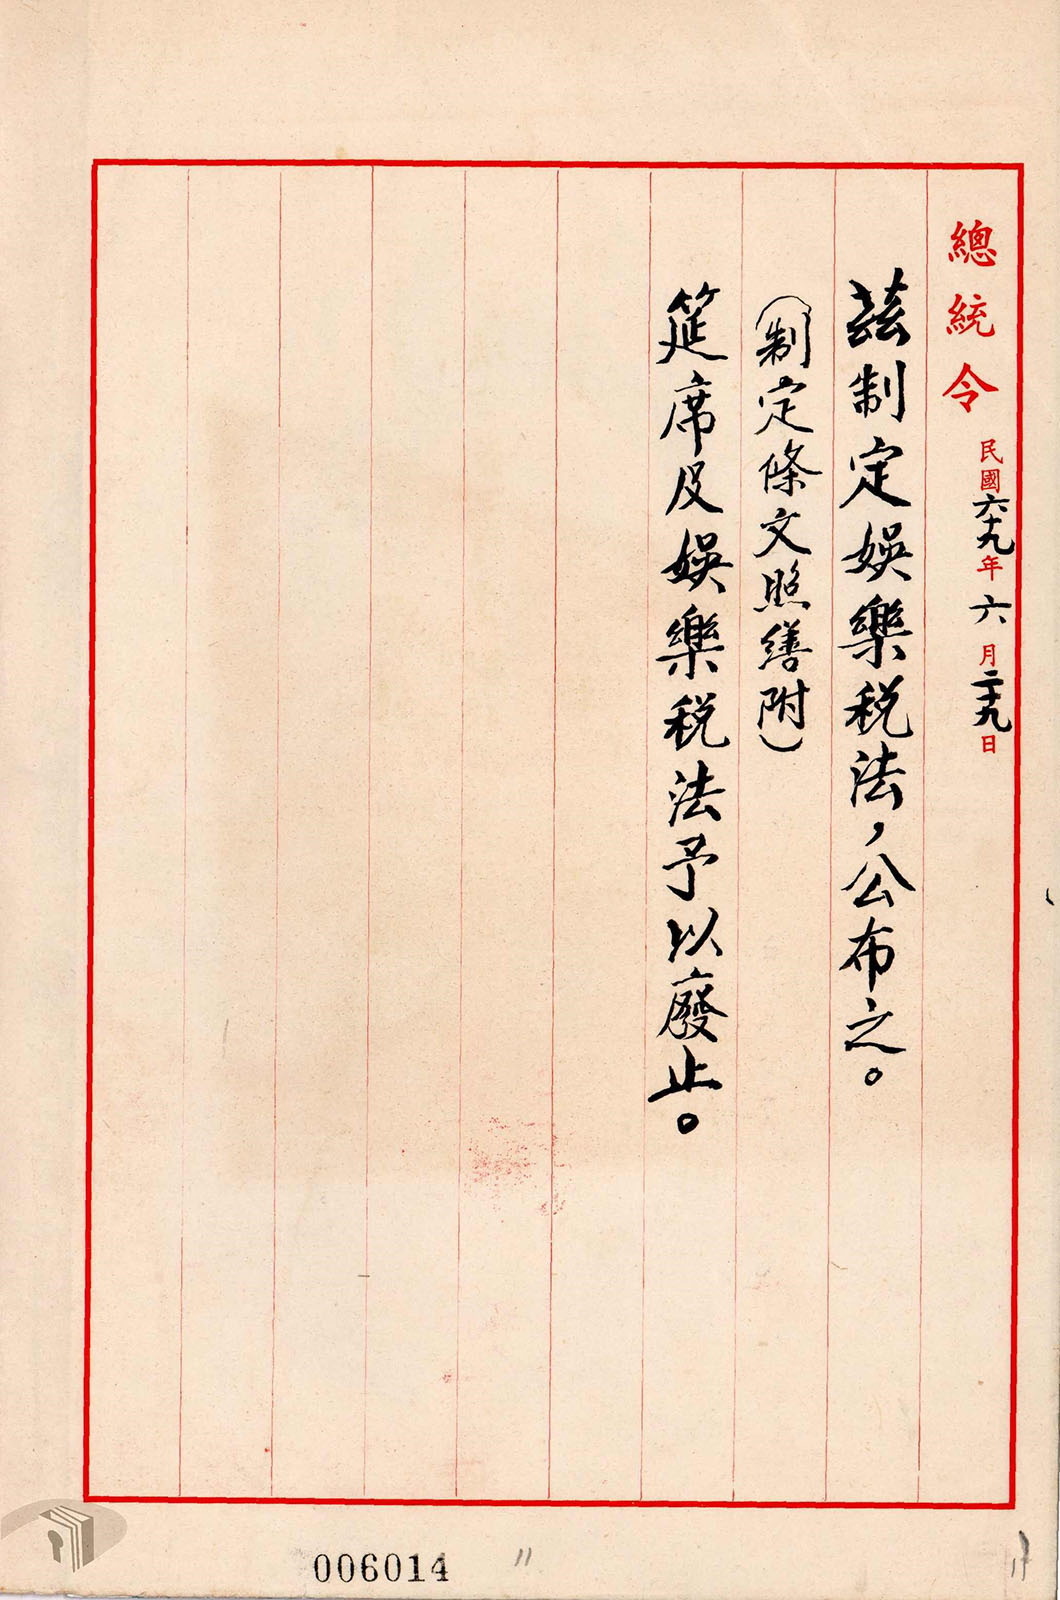 總統令 民國六十九年六月二十九日
茲制定娛樂稅法，公布之。
（制定條文照繕附）
筵席及娛樂稅法予以廢止。
006014
11
11